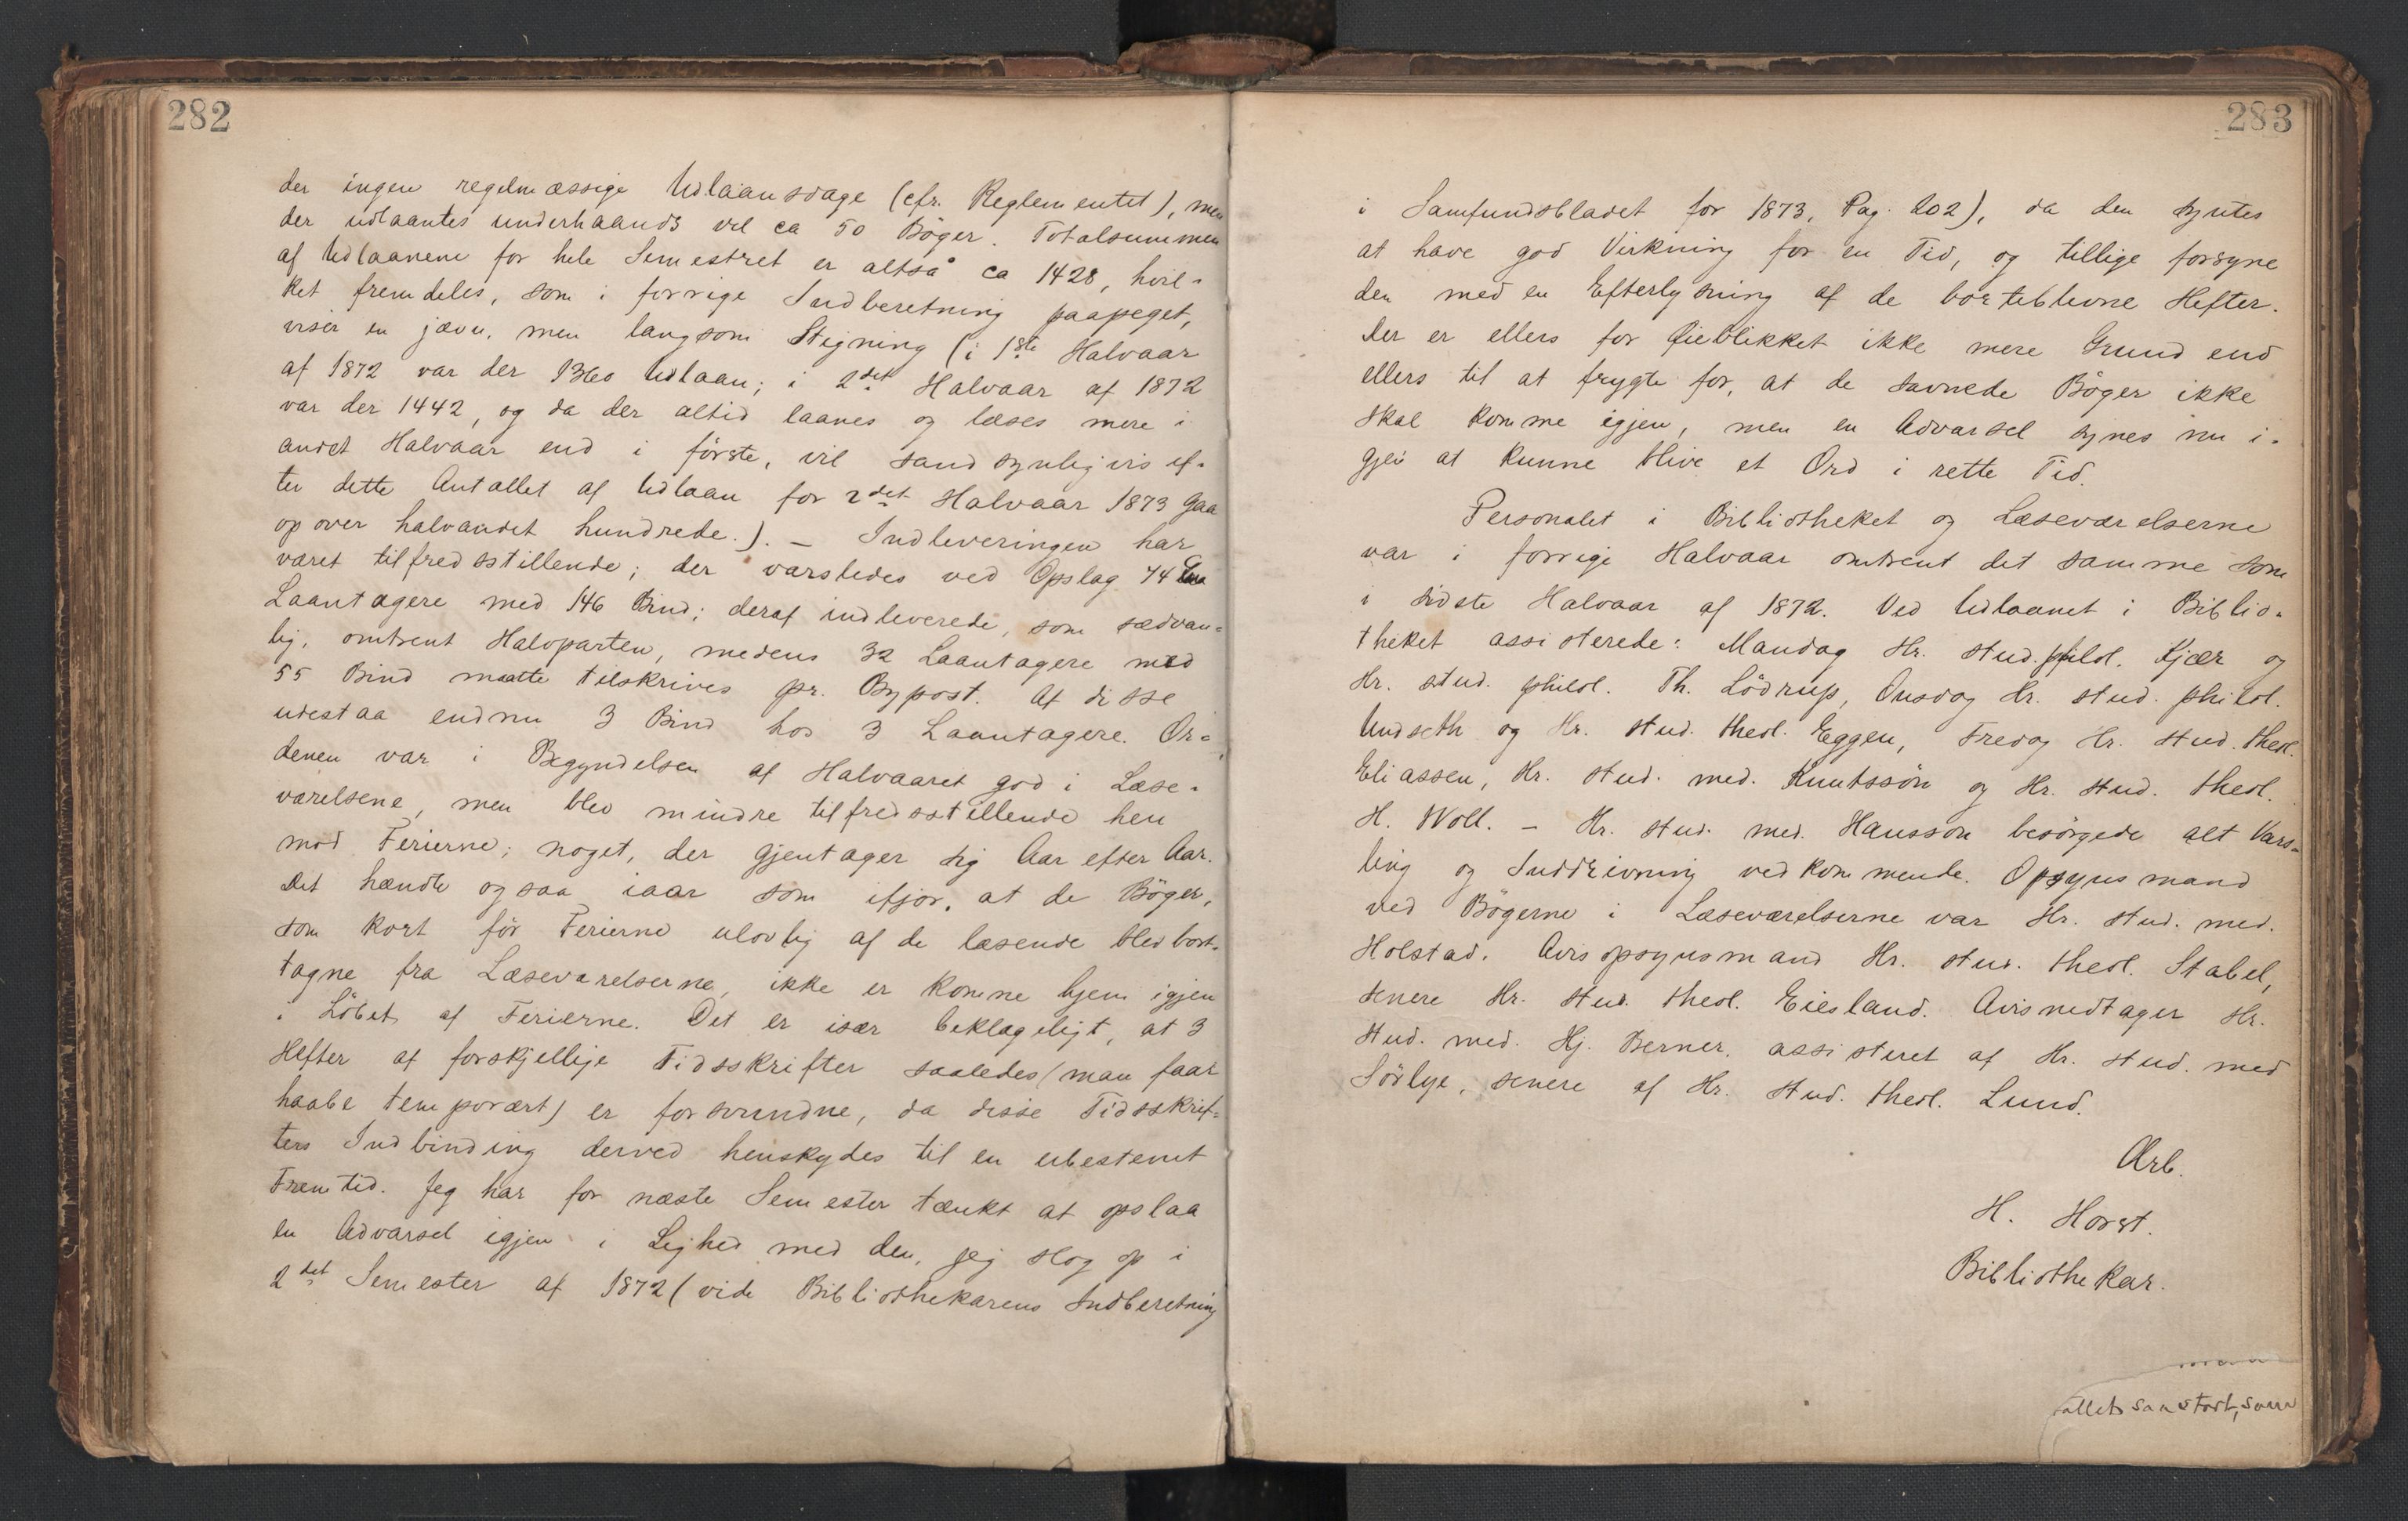 282
der ingen regelmæssige Udlaansdage (cfr. Reglementet), men
der udlaantes underhaands vel ca 50 Bøger. Totalsummen
af Udlaanene for hele Semestret er altså ca 1428, hvil-
ket fremdeles, som i forrige Indberetning paapeget,
viser en jævn, men langsom Stigning (i 1ste Halvaar
af 1872 var der 1360 Udlaan; i 2det Halvaar af 1872
var der 1442, og da der altid laanes og læses mere i
andet Halvaar end i første, vil sandsynligvis ef-
ter dette Antallet af Udlaan for 2det Halvaar 1873 gaa
op over halvandet hundrede.). – Indleveringen har
været tilfredsstillende; der varsledes ved Opslag 74
Laantagere med 146 Bind; deraf indleverede, som sædvan-
lig, omtrent Halvparten, medens 32 Laantagere med
55 Bind maatte tilskrives pr. Bypost. Af disse
udestaa endnu 3 Bind hos 3 Laantagere. Or-
denen var i Begyndelsen af Halvaaret god i Læse-
værelsene, men blev mindre tilfredsstillende hen
mod Ferierne; noget, der gjentager sig Aar efter Aar.
Det hændte ogsaa iaar som ifjor, at de Bøger,
som kort før Ferierne ulovlig af de læsende blev bort-
tagne fra Læseværelserne, ikke er komne hjem igjen
i Løbet af Ferierne. Det er især beklageligt, at 3
Hefter af forskjellige Tidsskrifter saaledes (man faar
haabe temporært) er forsvundne, da disse Tidsskrif-
ters Indbinding derved henskydes til en ubestemt
Fremtid. Jeg har for næste Semester tænkt at opslaa
en Advarsel igjen i Lighed med den, jeg slog op i
2det Semester af 1872 (vide Bibliothekarens Indberetning
283
i Samfundsbladet for 1873, Pag. 202), da den syntes
at have god Virkning for en Tid, og tillige forsyne
den med en Efterlysning af de borteblevne Hefter.
Der er ellers for Øieblikket ikke mere Grund end
ellers til at frygte for, at de savnede Bøger ikke
skal komme igjen, men en Advarsel synes nu i-
gjen at kunne blive et Ord i rette Tid.
Personalet i Bibliotheket og Læseværelserne
var i forrige Halvaar omtrent det samme som
i sidste Halvaar af 1872. Ved Udlaanet i Biblio-
theket assisterede: Mandag Hr. stud. philol. Kjær og
Hr. stud. philol. Th. Lödrup, Onsdag Hr. stud. philol.
Undseth og Hr. stud. theol. Eggen, Fredag Hr. stud. theol.
Eliassen, Hr. stud. med. Knutssön og Hr. stud. theol.
H. Woll. – Hr. stud. med. Hansson besörgede alt Vars-
ling og Inddrivning vedkommende. Opsynsmand
ved Bøgerne i Læseværelserne var Hr. stud. med.
Holstad. Avisopsynsmand Hr. stud. theol. Stabel,
senere Hr. stud. theol. Eiesland. Avisnedtager Hr.
stud. med. Hj. Berner, assisteret af Hr. stud. med
Sörlye, senere af Hr. stud. theol. Lund.
Ærb.
H. Horst.
Bibliothekar.
tallet saa stort, som